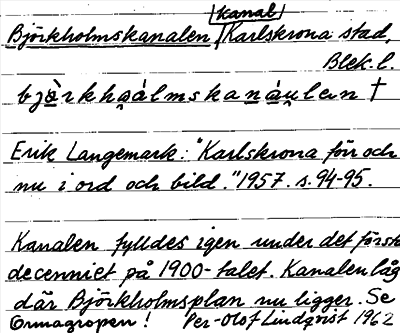 kanal
Björkholmskanalen / Karlskrona stad,
Blek. l.
Erik Langemark: "Karlskrona förr och
nu i ord och bild." 1957. s. 94-95.
Kanalen fylldes igen under det först
decenniet på 1900-talet. Kanalen låg
där Björkholmsplan nu ligger. Se
Grmagropen! Per-Olof Lindqvist 1962